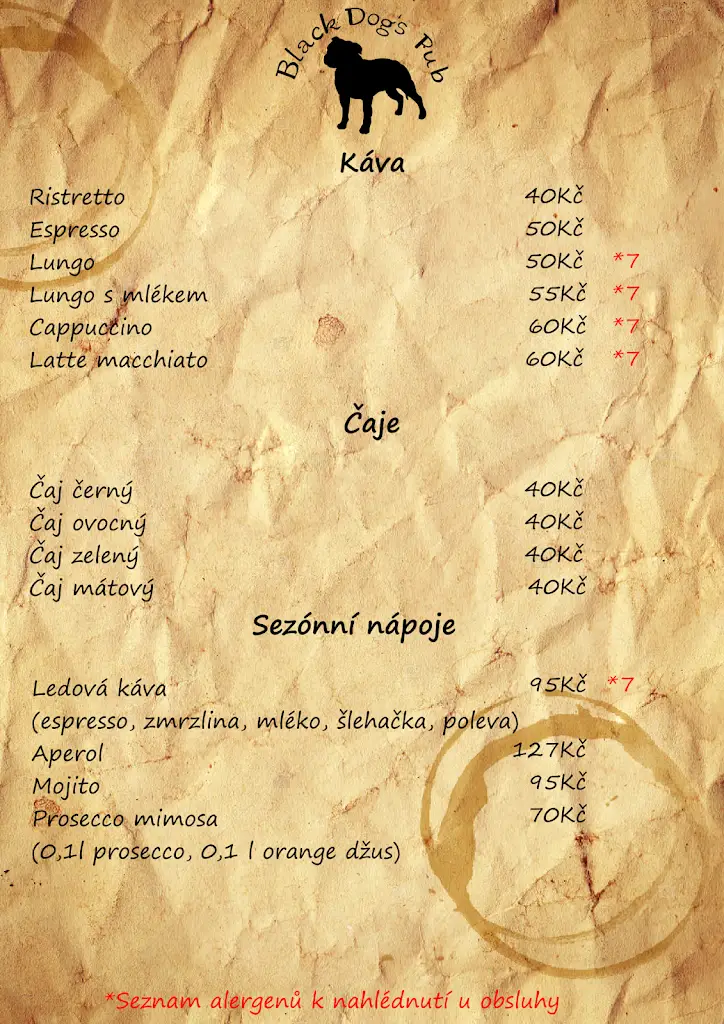 Black Dog's Pub
Káva
Ristretto 40Kč
Espresso 50Kč
Lungo 50Kč *7
Lungo s mlékem 55Kč *7
Cappuccino 60Kč *7
Latte macchiato 60Kč *7
Čaje
Čaj černý 40Kč
Čaj ovocný 40Kč
Čaj zelený 40Kč
Čaj mátový 40Kč
Sezónní nápoje
Ledová káva 95Kč *7
(espresso, zmrzlina, mléko, šlehačka, poleva)
Aperol 127Kč
Mojito 95Kč
Prosecco mimosa 70Kč
(0,1l prosecco, 0,1 l orange džus)
*Seznam alergenů k nahlédnutí u obsluhy